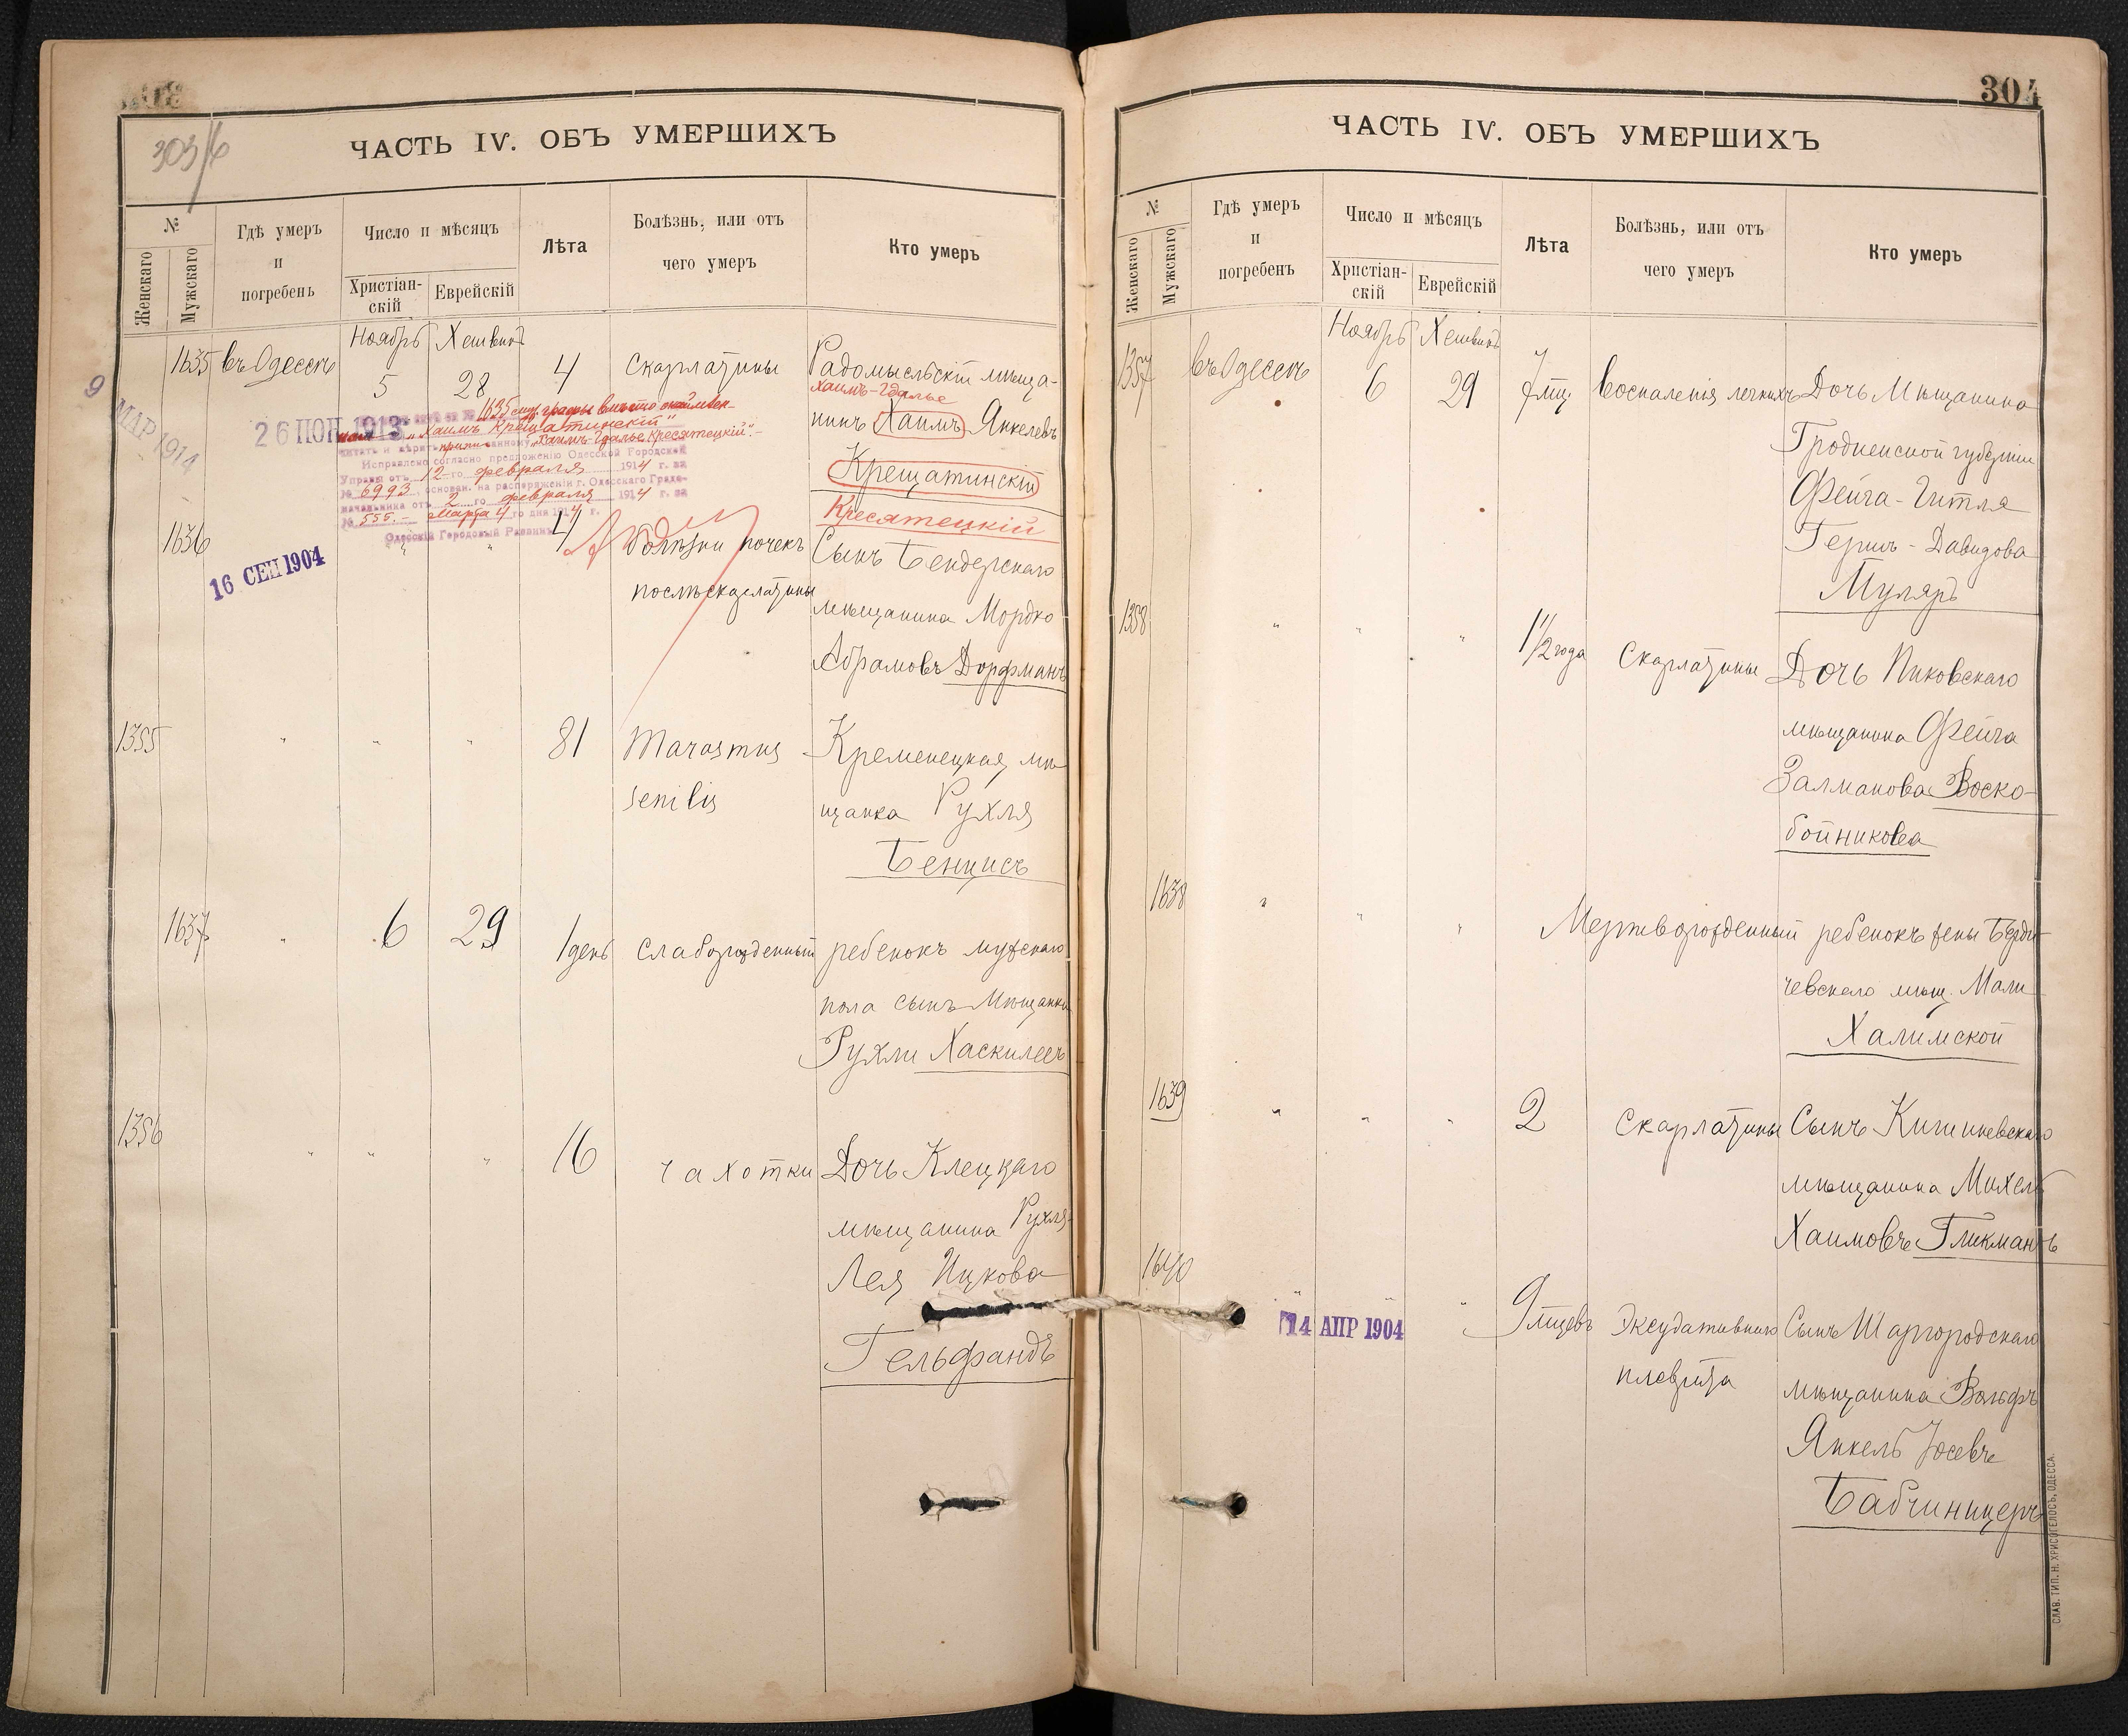 303/6
ЧАСТЬ IV. ОБЪ УМЕРШИХЪ
№
Женскаго
Мужскаго
Гдѣ умеръ
и
погребенъ
Число и мѣсяцъ
Христіан-
скій
Еврейскій
Лѣта
Болѣзнь, или отъ
чего умеръ
Кто умеръ
Ноябрь Хешвинъ
1635 въ Одессѣ 5 28 4 Скарлатины Радомысльскій мѣща-
Хаимъ-Гдалье
нинъ Хаимъ Янкелевъ
Крещатинскій
Кресятецкій
9 МАР 1914
1635 муж. графы вмѣсто
"Хаимъ Крещатинскій"
читать и вѣрить "Хаимъ-Гдалье Кресятецкій".-
Исправлено согласно предложенію Одесской Городской
Управы отъ 12 го февраля 1914 г. за
№ 6993, основан. на распоряженіи г. Одесскаго Градо-
начальника отъ 2 го февраля 1914 г. за
№ 555.- Марта 4 го дня 1914 г.
Одесскій Городовой Раввинъ
1636 " " 4 болѣзни почекъ Сынъ Бендерскаго
16 СЕН 1904
послѣ скарлатины мѣщанина Мордко
Абрамовъ Дорфманъ
1355 " " " 81 Marasmus Кременецкая мѣ
senilis щанка Рухля
Бенцисъ
1637 " 6 29 1 день Слаборожденный ребенокъ мужскаго
пола сынъ Мѣщанки
Рухли Хаскилевъ
1356 " " " 16 Чахотки Дочь Клецкаго
мѣщанина Рухля-
Лея Ицкова
Гельфандъ
304
ЧАСТЬ IV. ОБЪ УМЕРШИХЪ
№
Женскаго
Мужскаго
Гдѣ умеръ
и
погребенъ
Число и мѣсяцъ
Христіан-
скій
Еврейскій
Лѣта
Болѣзнь, или отъ
чего умеръ
Кто умеръ
Ноябрь Хешвинъ
1357 въ Одессѣ 6 29 7 мц. Воспаленія легкихъ Дочь Мѣщанина
Гродненской губерніи
Фейга-Гитля
Герцъ-Давидова
Муляръ
1358 " " " 1 1/2 года Скарлатины Дочь Пиковскаго
мѣщанина Фейга
Залманова Воско-
бойникова
1638 " " " Мертворожденный ребенокъ жены Берди-
чевскаго мѣщ. Мали
Халимской
1639 " " " 2 Скарлатины Сынъ Кишиневскаго
мѣщанина Михель
Хаимовъ Гликманъ
1640 " " " 9 мцевъ Эксудативнаго Сынъ Шаргородскаго
14 АПР 1904
плеврита мѣщанина Вольфъ
Янкель Іосевъ
Бабчиницеръ
СЛАВ. ТИП. Н. ХРИСОГЕЛОСЪ, ОДЕССА.